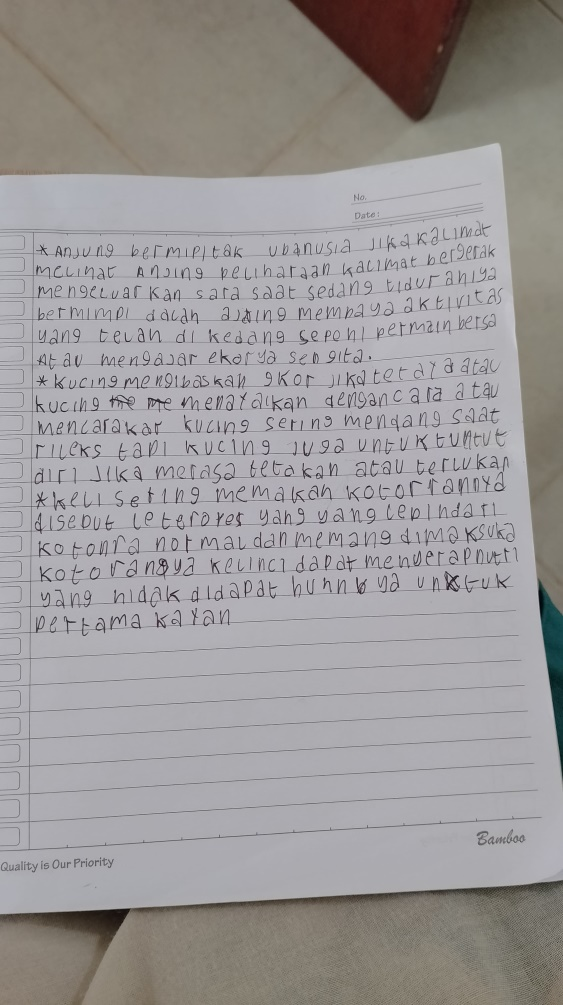 No.
Date:
* Anjung bermipitak ubanusia jika kalimat
melinat Anjing peliharaan kalimat bergerak
mengeluarkan sara saat sedang tiduraniya
bermimpi dalah anjing mempaya aktivitas
yang telah di kedang seponi permain bersa
Atau mengajar ekorya sengita.
* Kucing mengibaskan gkor jika tetaya atau
kucing menayaikan dengan cara atau
mencarakar kucing sering mendang saat
rileks tapi kucing juga untuk tuntut
diri jika merasa tetakan atau terlukan
* keli sering memakan kotorrannya
disebut leteroyes yang yang lepindari
kotonra normal dan memang dimaksuka
kotorangya kelinci dapat menyerapnutri
yang nidak didapat hunnb ya unktuk
pertama kayan
Bamboo
Quality is Our Priority